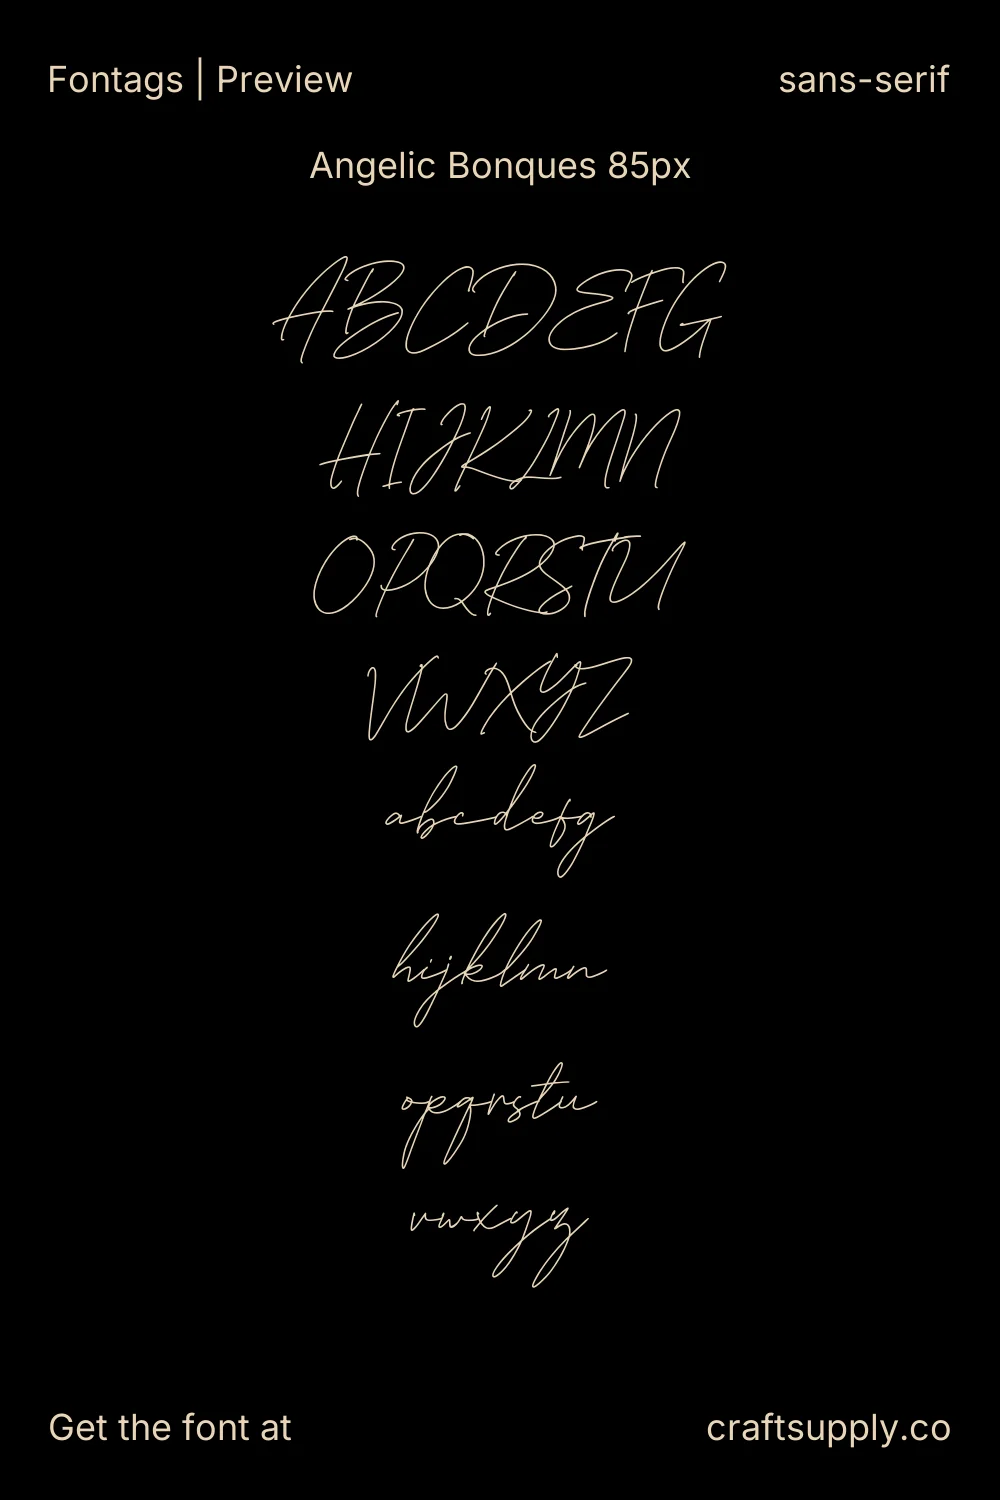 Fontags | Preview
sans-serif
Angelic Bonques 85px
ABCDEFG
HIJKLMN
OPQRSTU
VWXYZ
abcdefg
hijklmn
opqrstu
vwxyz
Get the font at
craftsupply.co